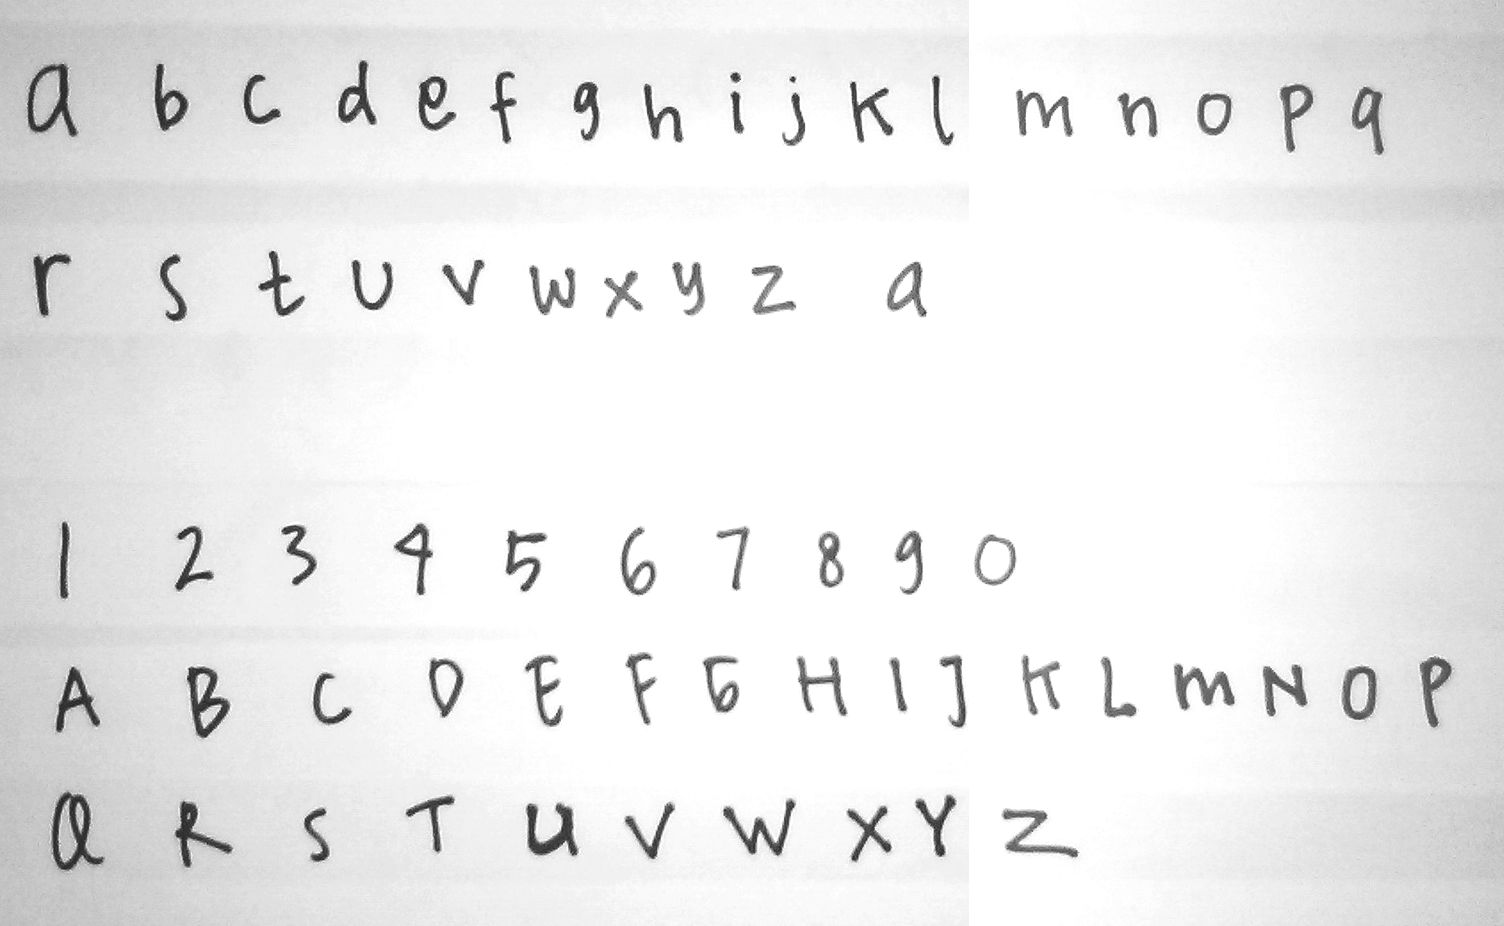 a b c d e f g h i j k l m n o p q
r s t u v w x y z a
1 2 3 4 5 6 7 8 9 0
A B C D E F G H I J K L m N O P
Q R S T U V W X Y Z